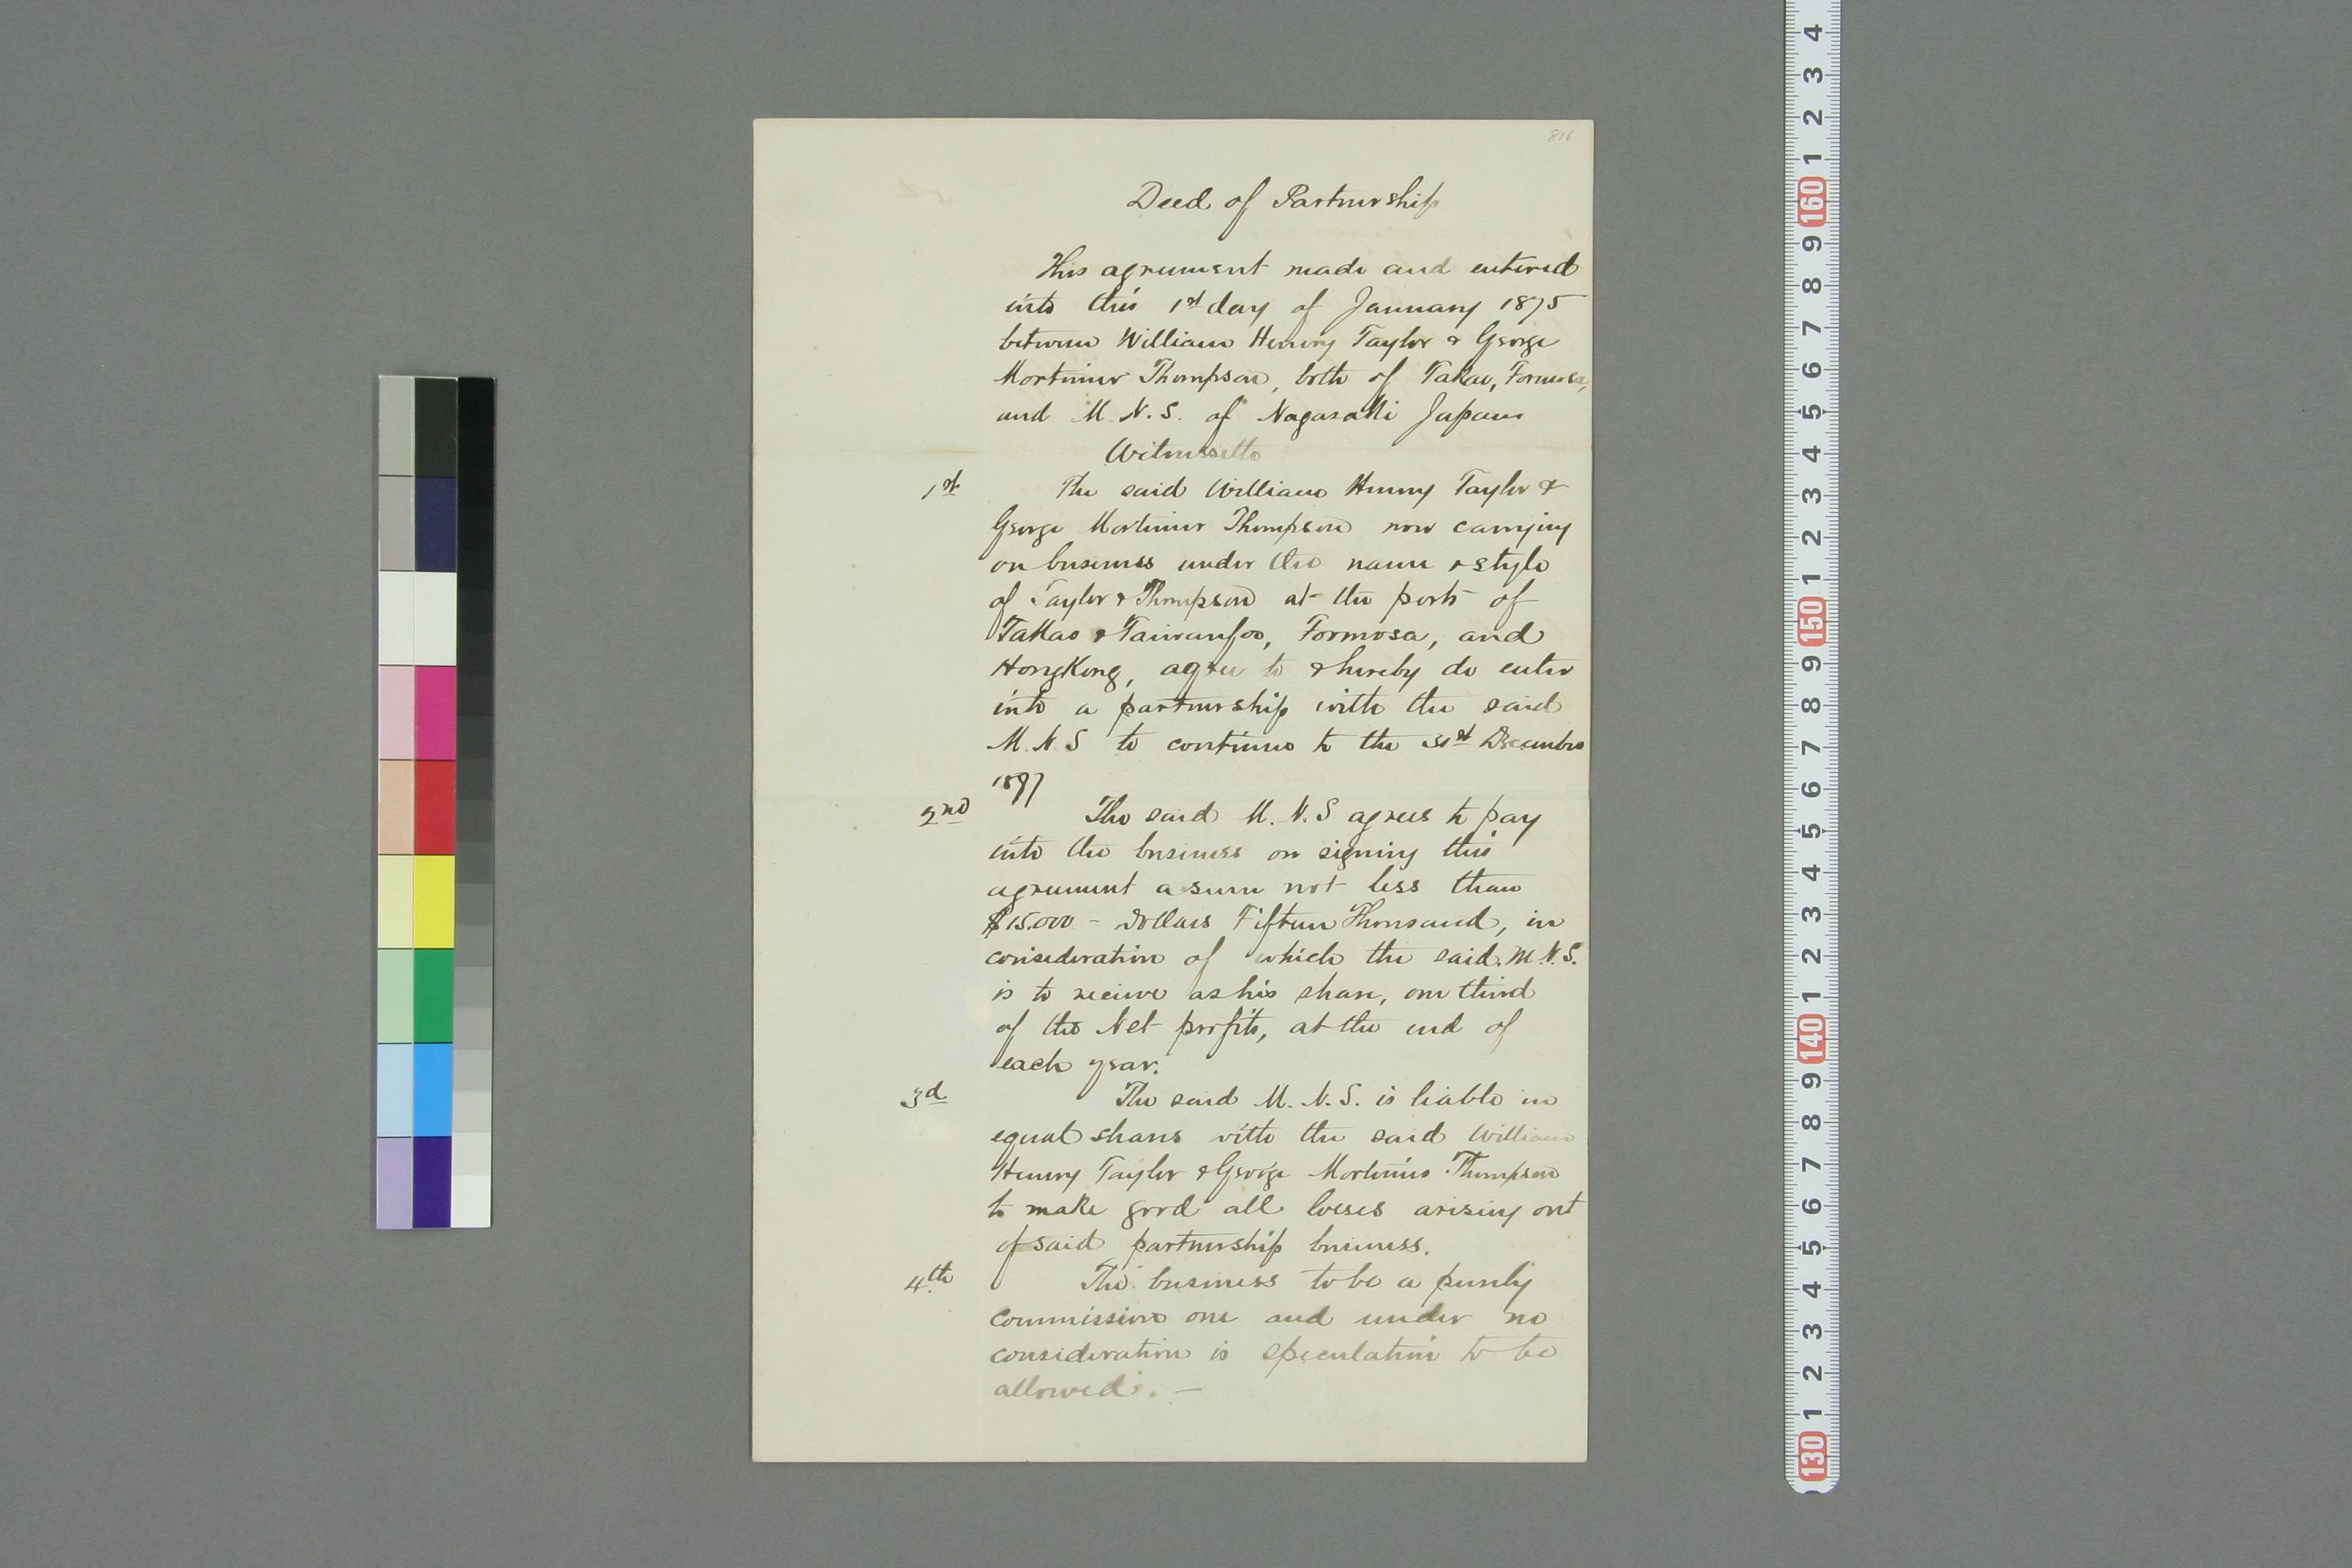 816
Deed of Partnership
This agreement made and entered
into this 1st day of January 1875
between William Henry Taylor & George
Mortimer Thompson, both of Takao, Formosa,
and M. N. S. of Nagasaki Japan
Witnesseth
1st The said William Henry Taylor &
George Mortimer Thompson now carrying
on business under the name & style
of Taylor & Thompson at the ports of
Takao & Taiwanfoo, Formosa, and
HongKong, agree to & hereby do enter
into a partnership with the said
M. N. S to continue to the 31st December
1897
2nd The said M. N. S agrees to pay
into the business on signing this
agreement a sum not less than
$15.000 - Dollars Fifteen Thousand, in
consideration of which the said. M. N. S.
is to receive as his share, one third
of the Net profits, at the end of
each year.
3d The said M. N. S. is liable in
equal shares with the said William
Henry Taylor & George Mortimer Thompson
to make good all losses arising out
of said partnership business.
4th The business to be a purely
commission one and under no
consideration is speculation to be
allowed. —
4
3
2
1
160
9
8
7
6
5
4
3
2
1
150
9
8
7
6
5
4
3
2
1
140
9
8
7
6
5
4
3
2
1
130